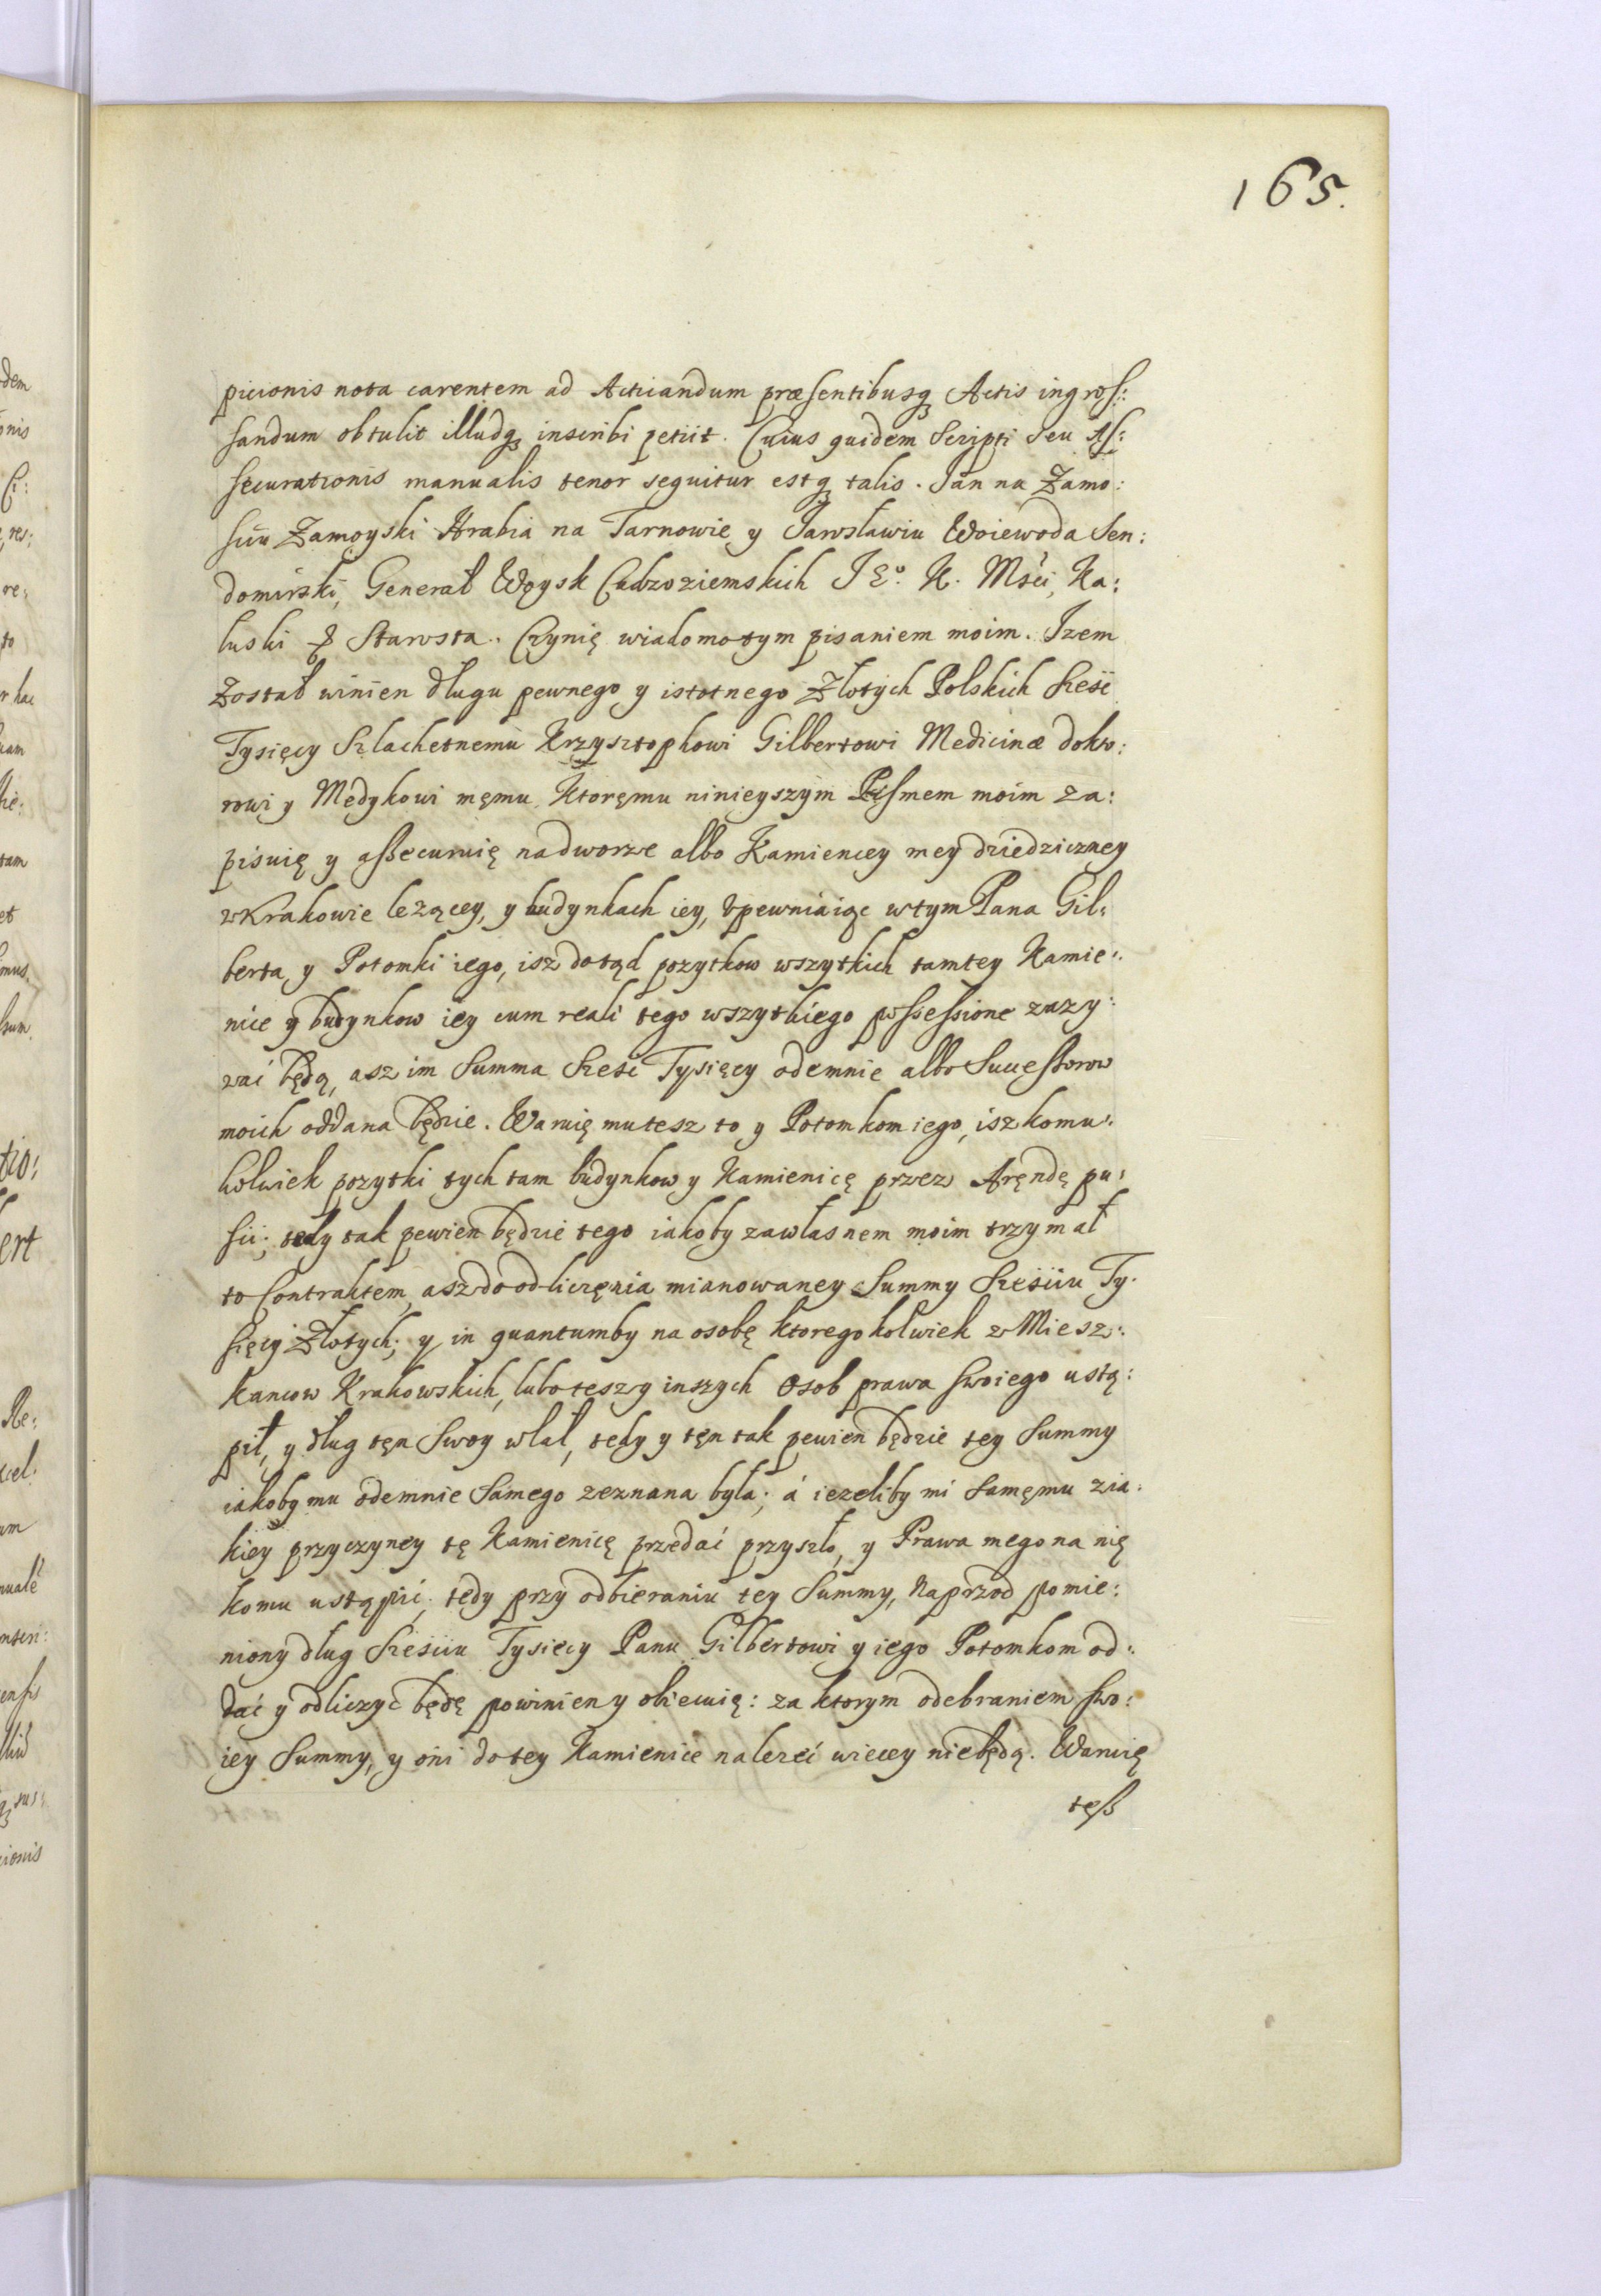 165.
picionis nota carentem ad Acticandum præsentibusq Actis ingros:
sandum obtulit illudq inscribi petiit. Cuius quidem Scripti seu As:
securationis manualis tenor sequitur estq talis. Jan na Zamo:
sciu Zamoyski Hrabia na Tarnowie y Jarosławiu Woiewoda Sen:
domirski, Generał Woysk Cudzoziemskich J Eº. K. Mści, Ka:
łuski & Starosta. Czynię wiadomo tym pisaniem moim. Izem
został winien długu pewnego y istotnego Złotych Polskich Sześć
Tysięcy Szlachetnemu Krzysztophowi Gilbertowi Medicinæ dokto:
rowi y Medykowi memu, Ktoręmu ninieyszym Pismem moim za:
pisuię y assecuruię na dworze albo Kamiencey mey dziedziczney
w Krakowie leząącey, y budynkach iey, Vpewniaiąc w tym Pana Gil:
berta y Potomki iego, isz dotąd pozytkow wszytkich tamtey Kamie:
nice y budynkow iey cum reali tego wszytkiego possessione zazy:
wać będą, asz im Summa Sześć Tysięcy odemnie albo Successorow
moich oddana będzie. Waruię mu tesz to y Potomkom iego, isz komu:
kolwiek pozytki tych tam budynkow y Kamienicę przez Aręndę pu:
sci; tedy tak pewien będzie tego iakoby za własnem moim trzymał
to Contraktem, asz do odliczęnia mianowaney Summy Sześciu Ty:
sięcy Złotych; y in quantumby na osobę ktoregokolwiek z Miesz:
kancow Krakowskich, lubo tesz y inszych Osob prawa swoiego ustą:
pił, y dług tęn Swoy wlał, tedy y tęn tak pewien będzie tey Summy
iakoby mu odemnie Samego zeznana była; á iezeliby mi Samęmu z ia:
kiey przyczyney tę Kamienicę przedać przyszło, y Prawa mego na nię
komu ustąpić; tedy przy odbieraniu tey Summy, Naprzod pomie:
niony dług Sześciu Tysięcy Panu Gilbertowi y iego Potomkom od:
dać y odliczyć będę powinien y obiecuię: za ktorym odebraniem swo:
iey Summy, y oni do tey Kamienice nalezeć więcey niebędą. Waruię
tęß